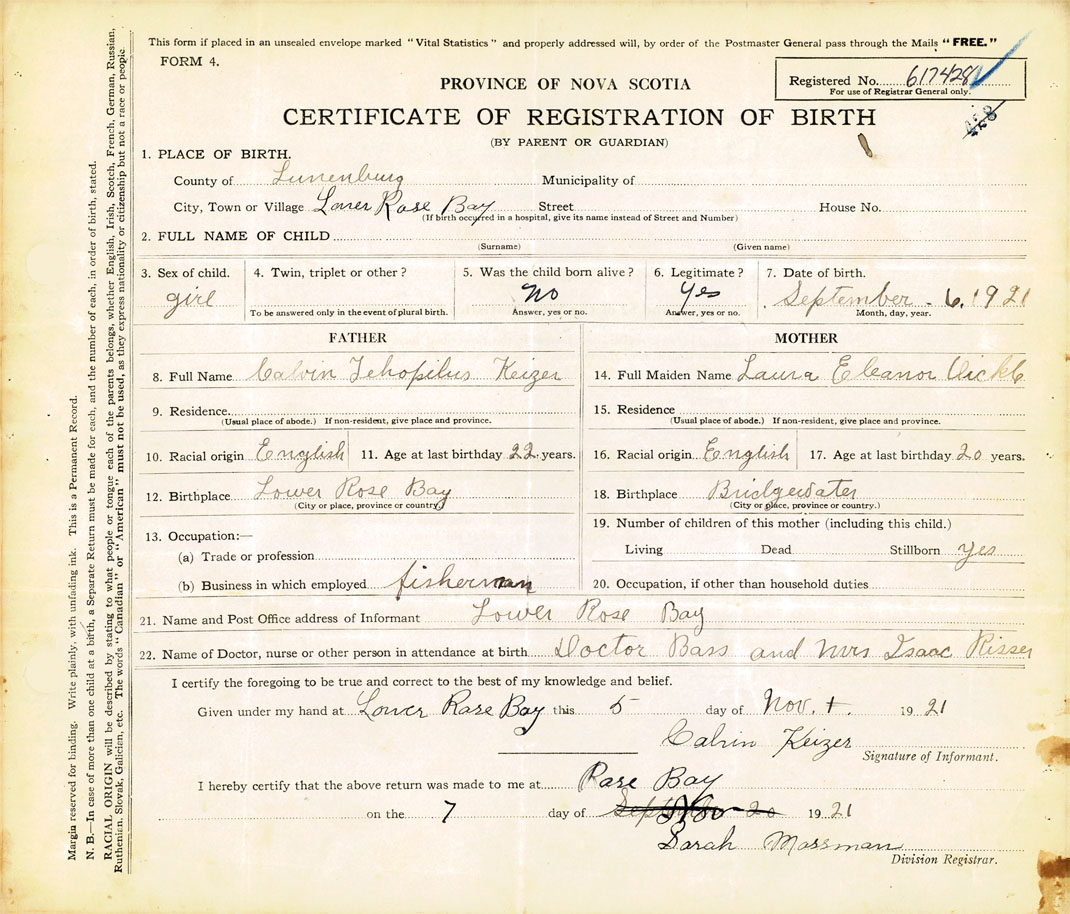 This form if placed in an unsealed envelope marked "Vital Statistics" and properly addressed will, by order of the Postmaster General pass through the Mails "FREE."
FORM 4.
Registered No. 617428
For use of Registrar General only.
428
PROVINCE OF NOVA SCOTIA
CERTIFICATE OF REGISTRATION OF BIRTH
(BY PARENT OR GUARDIAN)
1. PLACE OF BIRTH.
County of Lunenburg Municipality of
City, Town or Village Lower Rose Bay Street House No.
(If birth occurred in a hospital, give its name instead of Street and Number)
2. FULL NAME OF CHILD
(Surname) (Given name)
3. Sex of child. 4. Twin, triplet or other? 5. Was the child born alive? 6. Legitimate? 7. Date of birth.
girl No Yes September - 6. 1921
To be answered only in the event of plural birth. Answer, yes or no. Answer, yes or no. Month, day, year.
FATHER MOTHER
8. Full Name Calvin Tehopilus Keizer 14. Full Maiden Name Laura Eleanor
9. Residence 15. Residence
(Usual place of abode.) If non-resident, give place and province. (Usual place of abode.) If non-resident, give place and province.
10. Racial origin English 11. Age at last birthday 22 years. 16. Racial origin English 17. Age at last birthday 20 years.
12. Birthplace Lower Rose Bay 18. Birthplace Bridgewater
(City or place, province or country) (City or place, province or country.)
13. Occupation:— 19. Number of children of this mother (including this child.)
(a) Trade or profession Living Dead Stillborn yes
(b) Business in which employed fisherman 20. Occupation, if other than household duties
21. Name and Post Office address of Informant Lower Rose Bay
22. Name of Doctor, nurse or other person in attendance at birth Doctor Bass and Mrs Isaac Risser
I certify the foregoing to be true and correct to the best of my knowledge and belief.
Given under my hand at Lower Rose Bay this 5 day of Nov. 1921
Calvin Keizer
Signature of Informant.
I hereby certify that the above return was made to me at Rose Bay
on the 7 day of 1921
Sarah Mossman
Division Registrar.
Margin reserved for binding. Write plainly, with unfading ink. This is a Permanent Record.
N. B.—In case of more than one child at a birth, a Separate Return must be made for each, and the number of each, in order of birth, stated.
RACIAL ORIGIN will be described by stating to what people or tongue each of the parents belongs, whether English, Irish, Scotch, French, German, Russian,
Ruthenian, Slovak, Galician, etc. The words "Canadian" or "American" must not be used, as they express nationality or citizenship but not a race or people.